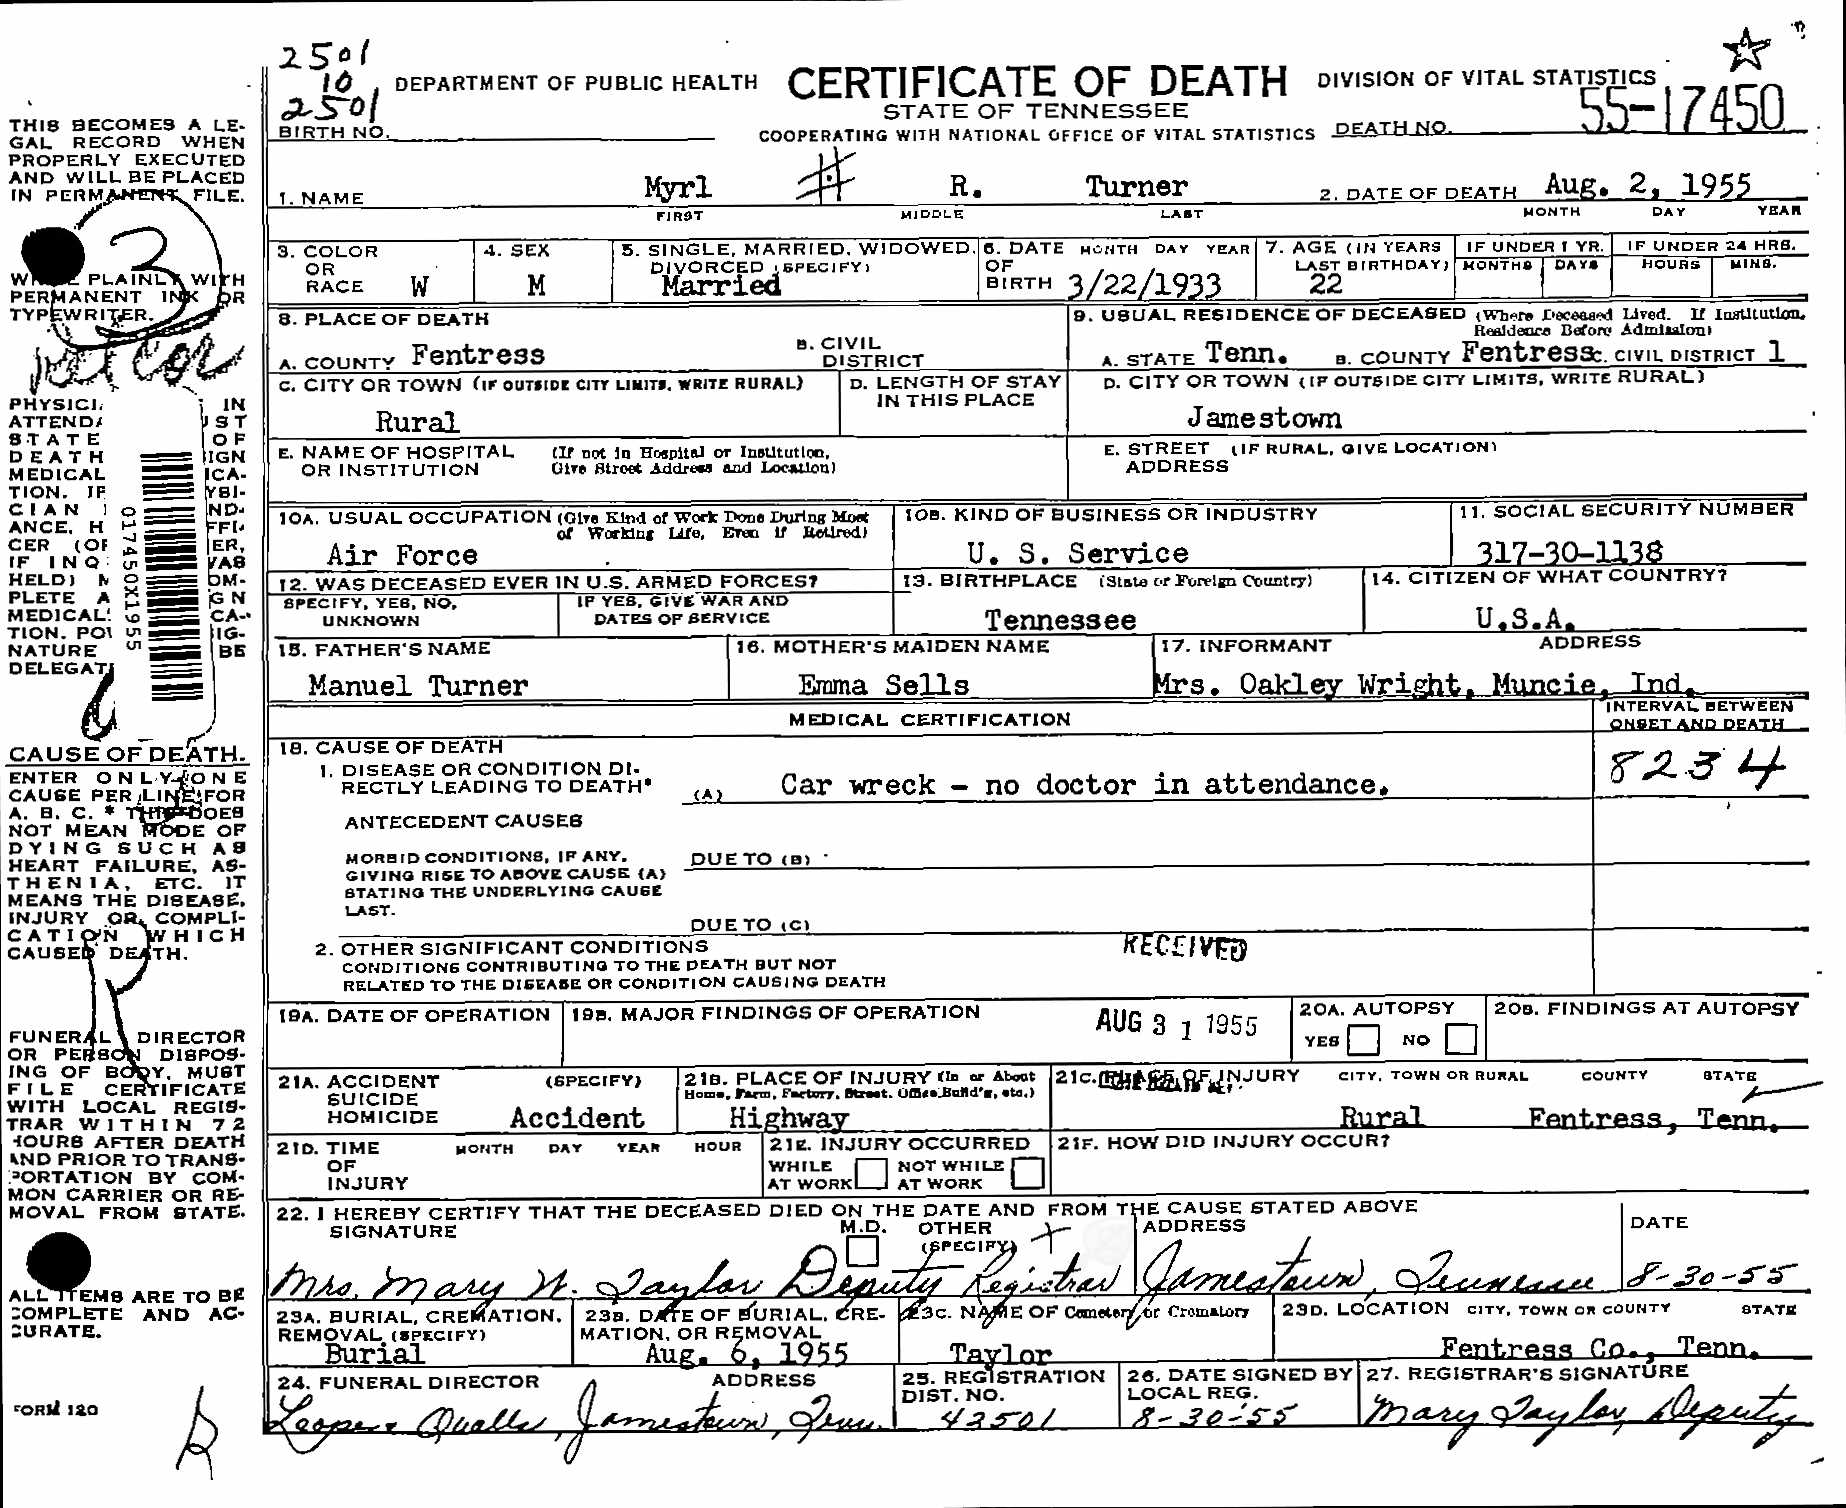 2501
10
2501
DEPARTMENT OF PUBLIC HEALTH CERTIFICATE OF DEATH DIVISION OF VITAL STATISTICS
STATE OF TENNESSEE
COOPERATING WITH NATIONAL OFFICE OF VITAL STATISTICS
BIRTH NO. DEATH NO. 55-17450
1. NAME Myrl # R. Turner 2. DATE OF DEATH Aug. 2, 1955
FIRST MIDDLE LAST MONTH DAY YEAR
3. COLOR OR RACE W
4. SEX M
5. SINGLE, MARRIED, WIDOWED, DIVORCED (SPECIFY) Married
6. DATE OF BIRTH MONTH DAY YEAR 3/22/1933
7. AGE (IN YEARS LAST BIRTHDAY) 22
IF UNDER 1 YR. MONTHS DAYS
IF UNDER 24 HRS. HOURS MINS.
8. PLACE OF DEATH
A. COUNTY Fentress
B. CIVIL DISTRICT
C. CITY OR TOWN (IF OUTSIDE CITY LIMITS, WRITE RURAL)
Rural
D. LENGTH OF STAY IN THIS PLACE
E. NAME OF HOSPITAL OR INSTITUTION (If not in Hospital or Institution, Give Street Address and Location)
9. USUAL RESIDENCE OF DECEASED (Where Deceased Lived. If Institution, Residence Before Admission)
A. STATE Tenn. B. COUNTY Fentress C. CIVIL DISTRICT 1
D. CITY OR TOWN (IF OUTSIDE CITY LIMITS, WRITE RURAL)
Jamestown
E. STREET ADDRESS (IF RURAL, GIVE LOCATION)
10A. USUAL OCCUPATION (Give Kind of Work Done During Most of Working Life, Even if Retired)
Air Force
10B. KIND OF BUSINESS OR INDUSTRY
U. S. Service
11. SOCIAL SECURITY NUMBER
317-30-1138
12. WAS DECEASED EVER IN U.S. ARMED FORCES?
SPECIFY, YES, NO, UNKNOWN
IF YES, GIVE WAR AND DATES OF SERVICE
13. BIRTHPLACE (State or Foreign Country)
Tennessee
14. CITIZEN OF WHAT COUNTRY?
U.S.A.
15. FATHER'S NAME
Manuel Turner
16. MOTHER'S MAIDEN NAME
Emma Sells
17. INFORMANT ADDRESS
Mrs. Oakley Wright, Muncie, Ind.
MEDICAL CERTIFICATION
INTERVAL BETWEEN ONSET AND DEATH
8234
18. CAUSE OF DEATH
1. DISEASE OR CONDITION DIRECTLY LEADING TO DEATH* (A) Car wreck - no doctor in attendance.
ANTECEDENT CAUSES
MORBID CONDITIONS, IF ANY, GIVING RISE TO ABOVE CAUSE (A) STATING THE UNDERLYING CAUSE LAST.
DUE TO (B)
DUE TO (C)
2. OTHER SIGNIFICANT CONDITIONS
CONDITIONS CONTRIBUTING TO THE DEATH BUT NOT
RELATED TO THE DISEASE OR CONDITION CAUSING DEATH
RECEIVED
AUG 31 1955
19A. DATE OF OPERATION
19B. MAJOR FINDINGS OF OPERATION
20A. AUTOPSY
YES NO
20B. FINDINGS AT AUTOPSY
21A. ACCIDENT SUICIDE HOMICIDE (SPECIFY) Accident
21B. PLACE OF INJURY (In or About Home, Farm, Factory, Street, Office Build'g, etc.)
Highway
21C. PLACE OF INJURY CITY, TOWN OR RURAL COUNTY STATE
Rural Fentress, Tenn.
21D. TIME OF INJURY MONTH DAY YEAR HOUR
21E. INJURY OCCURRED
WHILE AT WORK NOT WHILE AT WORK
21F. HOW DID INJURY OCCUR?
22. I HEREBY CERTIFY THAT THE DECEASED DIED ON THE DATE AND FROM THE CAUSE STATED ABOVE
SIGNATURE M.D. OTHER (SPECIFY) ADDRESS DATE
Mrs. Mary W. Taylor Deputy Registrar Jamestown, Tennessee 8-30-55
23A. BURIAL, CREMATION, REMOVAL (SPECIFY)
Burial
23B. DATE OF BURIAL, CREMATION, OR REMOVAL
Aug. 6, 1955
23C. NAME OF Cemetery or Crematory
Taylor
23D. LOCATION CITY, TOWN OR COUNTY STATE
Fentress Co., Tenn.
24. FUNERAL DIRECTOR ADDRESS
Qualls, Jamestown, Tenn.
25. REGISTRATION DIST. NO.
43501
26. DATE SIGNED BY LOCAL REG.
8-30-55
27. REGISTRAR'S SIGNATURE
Mary Taylor, Deputy
THIS BECOMES A LE-
GAL RECORD WHEN
PROPERLY EXECUTED
AND WILL BE PLACED
IN PERMANENT FILE.
3
PLAINLY WITH
PERMANENT INK OR
TYPEWRITER.
01745 0X1955
CAUSE OF DEATH.
ENTER ONLY ONE
CAUSE PER LINE FOR
A. B. C. * THIS DOES
NOT MEAN MODE OF
DYING SUCH AS
HEART FAILURE, AS-
THENIA, ETC. IT
MEANS THE DISEASE,
INJURY OR COMPLI-
CATION WHICH
CAUSED DEATH.
R
FUNERAL DIRECTOR
OR PERSON DISPOS-
ING OF BODY, MUST
FILE CERTIFICATE
WITH LOCAL REGIS-
TRAR WITHIN 72
HOURS AFTER DEATH
AND PRIOR TO TRANS-
PORTATION BY COM-
MON CARRIER OR RE-
MOVAL FROM STATE.
ALL ITEMS ARE TO BE
COMPLETE AND AC-
CURATE.
FORM 120